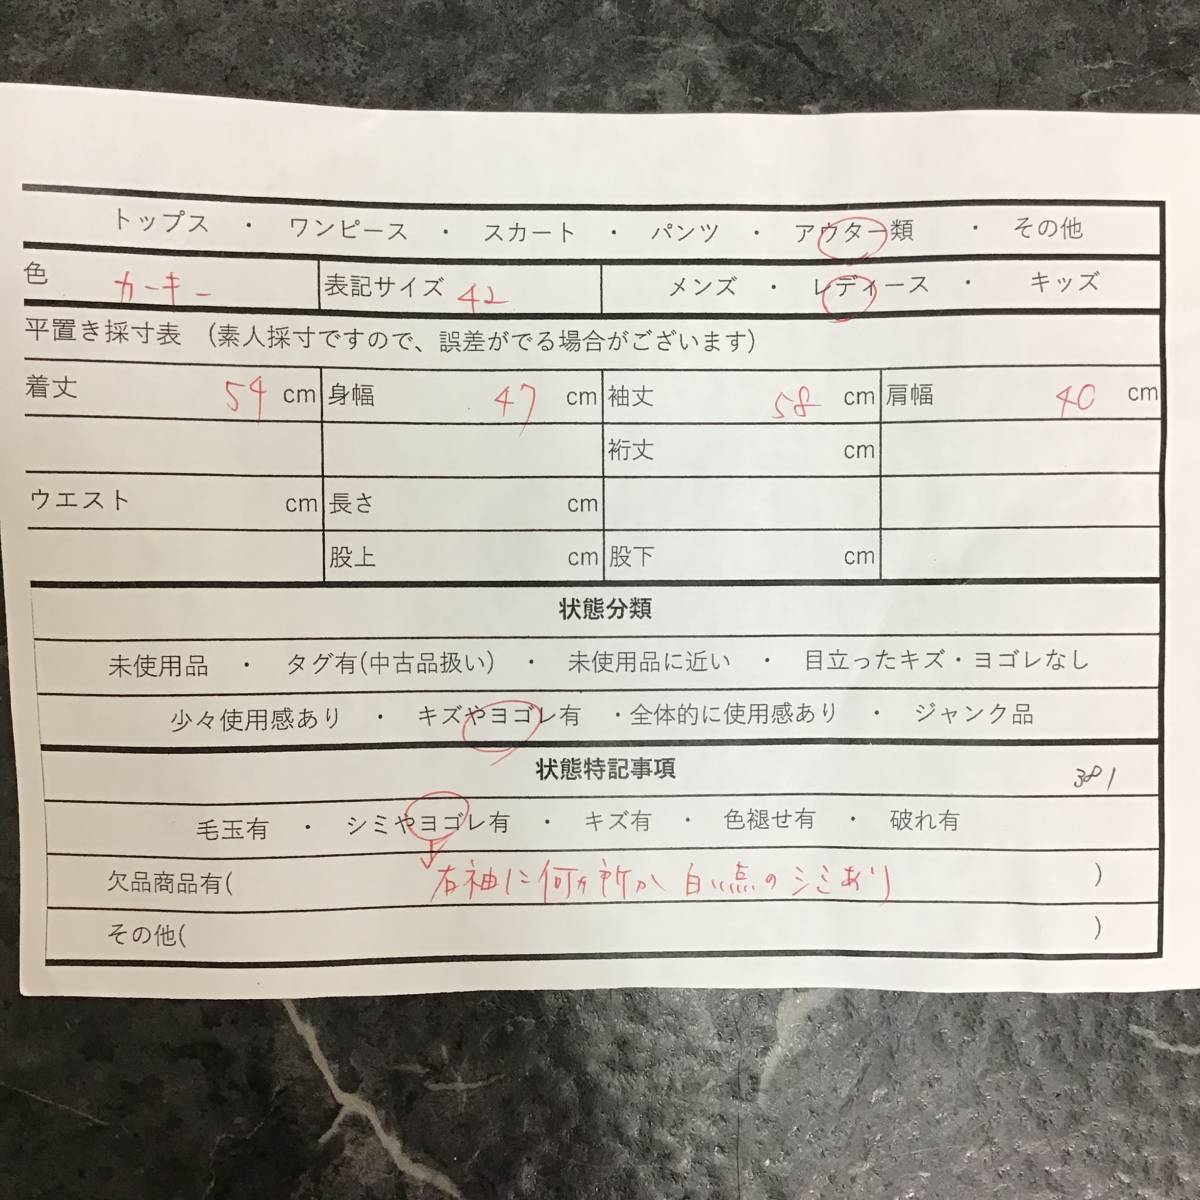 トップス ・ ワンピース ・ スカート ・ パンツ ・ アウター類 ・ その他
色 カーキー 表記サイズ 42 メンズ ・ レディース ・ キッズ
平置き採寸表 (素人採寸ですので、誤差がでる場合がございます)
着丈 54 cm 身幅 47 cm 袖丈 58 cm 肩幅 40 cm
裄丈 cm
ウエスト cm 長さ cm
股上 cm 股下 cm
状態分類
未使用品 ・ タグ有(中古品扱い) ・ 未使用品に近い ・ 目立ったキズ・ヨゴレなし
少々使用感あり ・ キズやヨゴレ有 ・全体的に使用感あり ・ ジャンク品
状態特記事項 381
毛玉有 ・ シミやヨゴレ有 ・ キズ有 ・ 色褪せ有 ・ 破れ有
欠品商品有( 右袖に何ヵ所か 白い点のシミあり )
その他( )